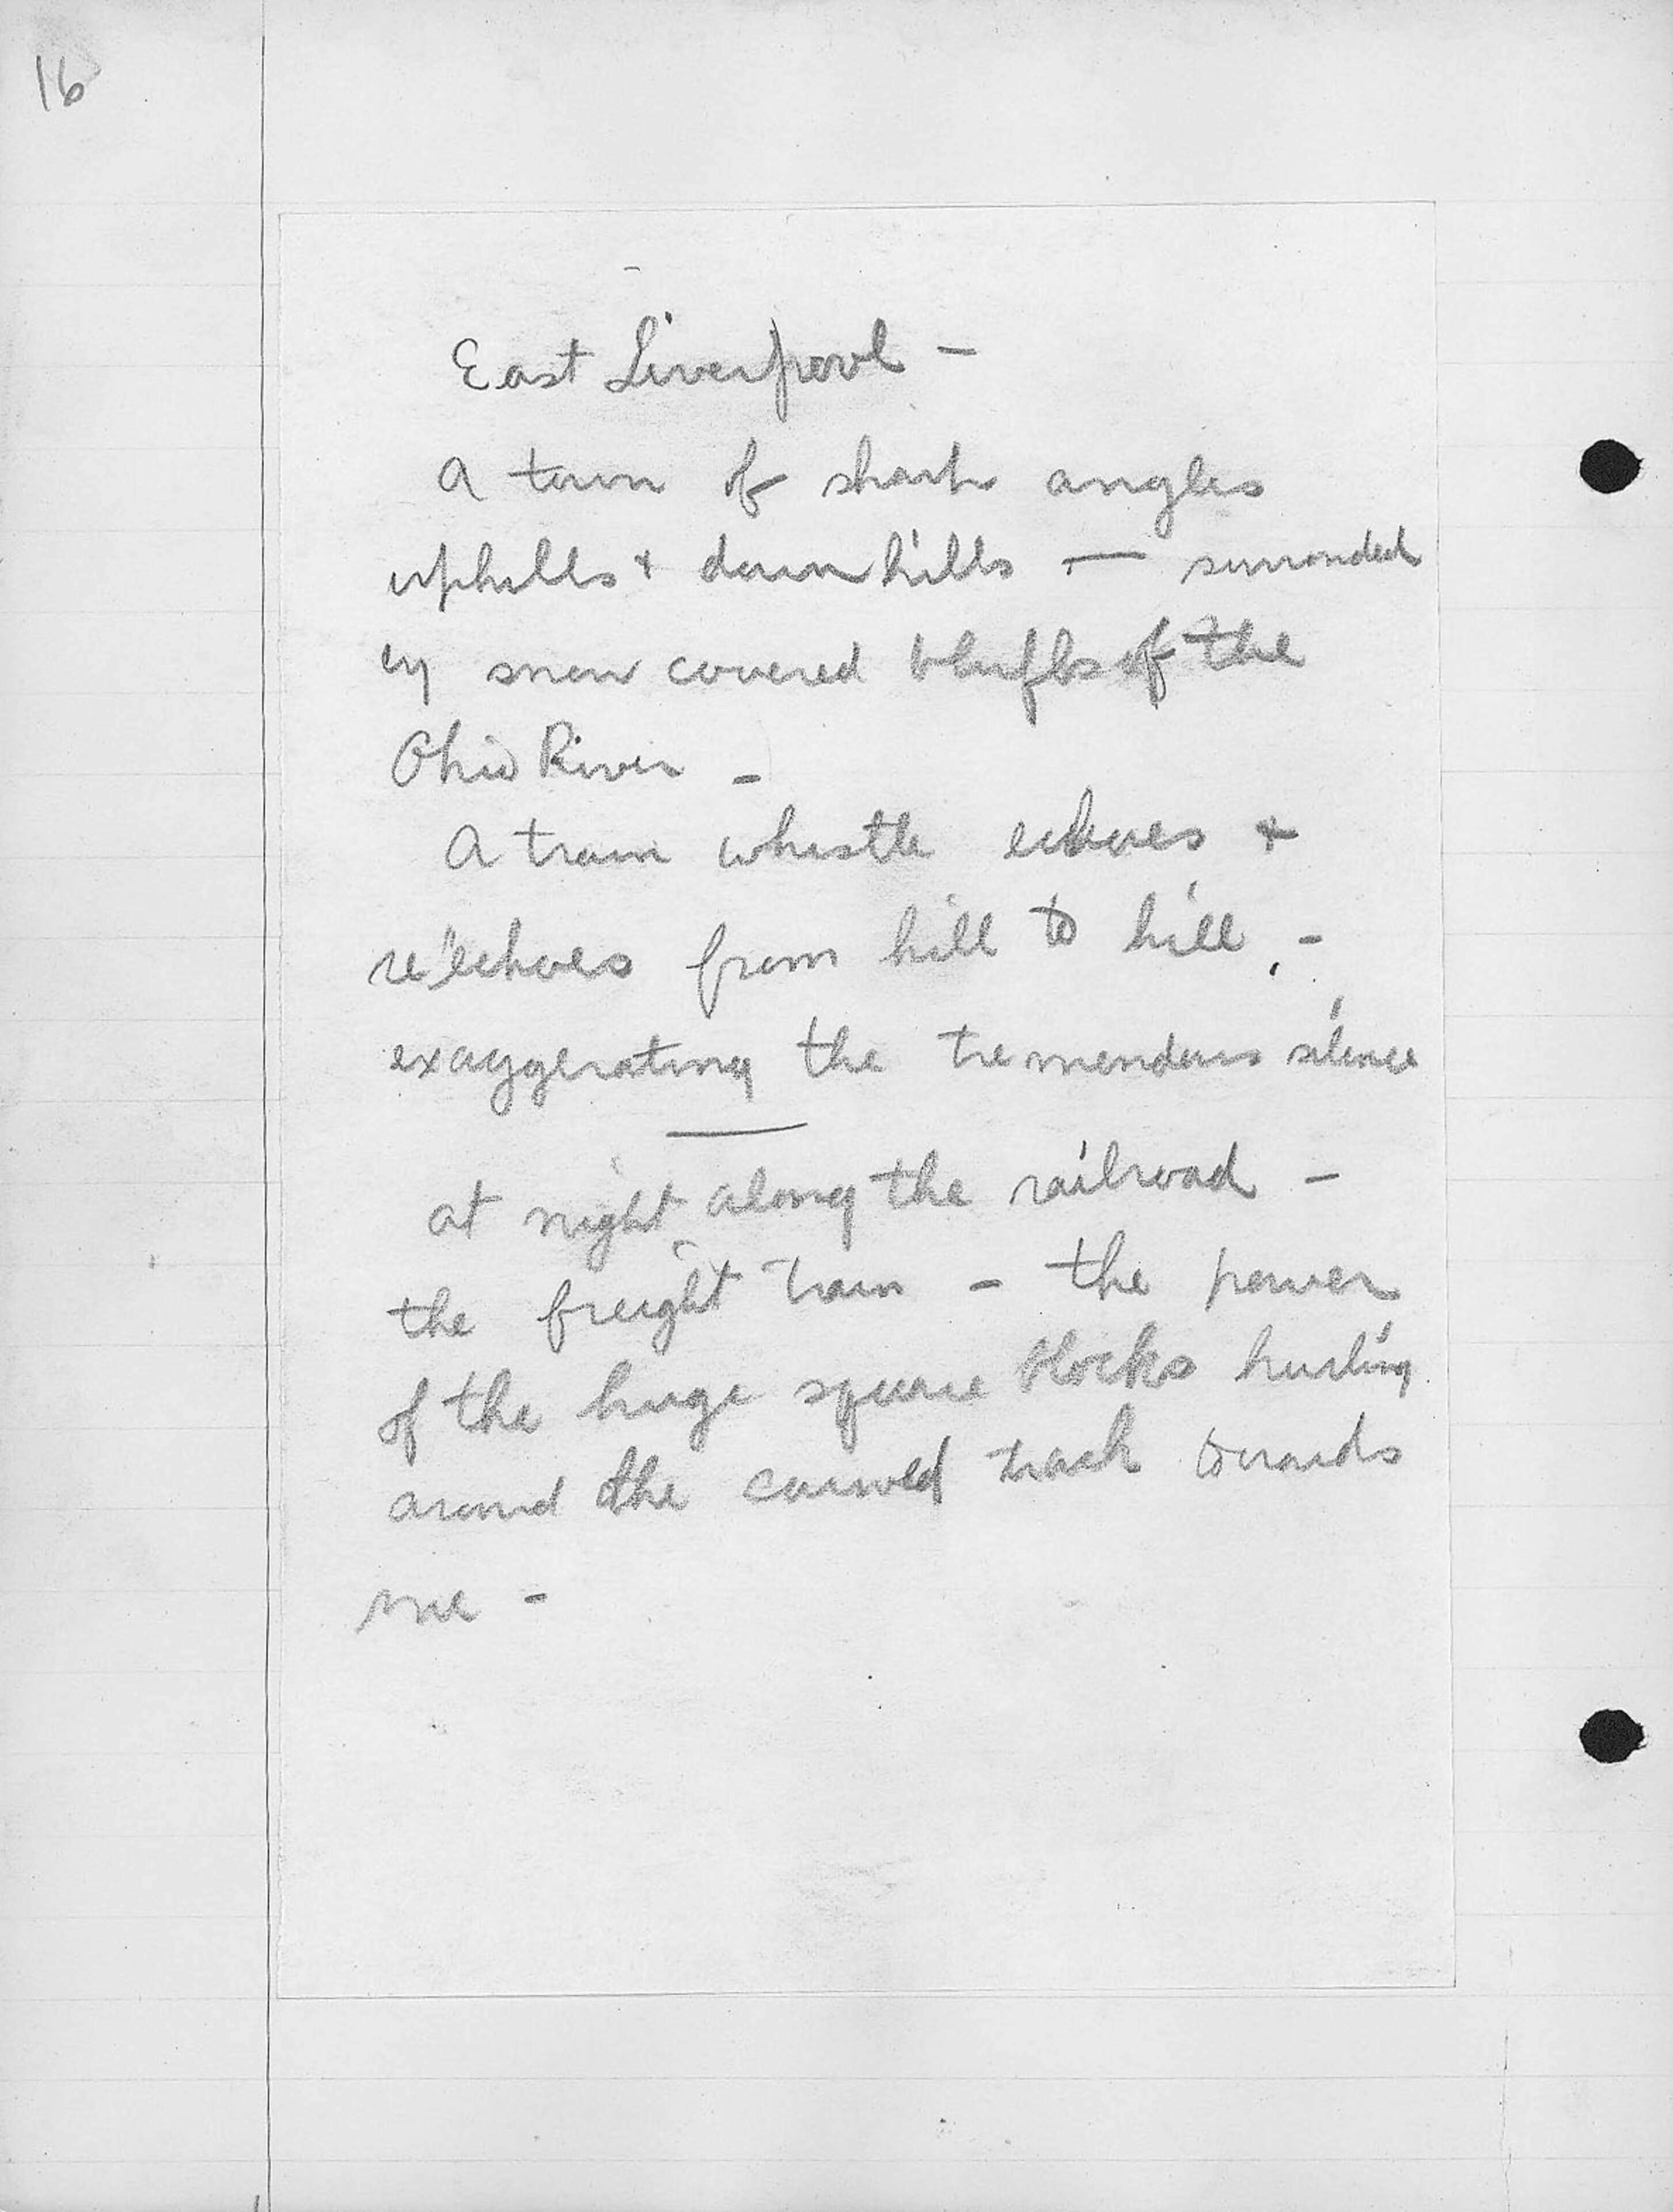 16
East Liverpool –
A town of sharp angles
uphills + downhills — surronded
by snow covered bluffs of the
Ohio River –
A train whistle echoes +
re'echoes from hill to hill, –
exaggerating the tremendous silence
at night along the railroad –
the freight train – the power
of the huge square blocks hurling
around the curved track towards
me –